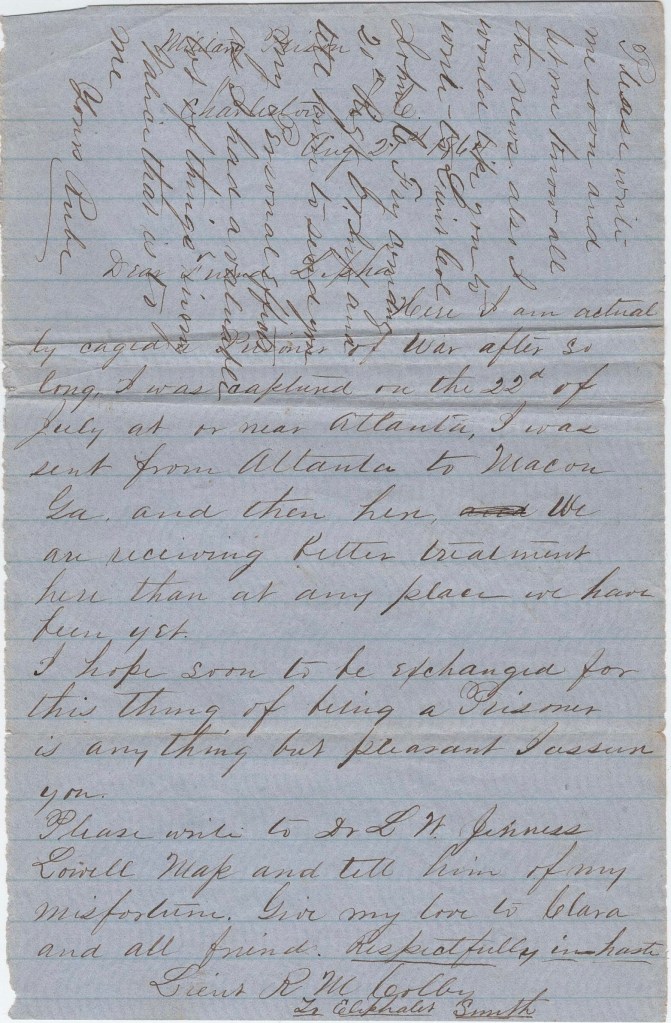 Military Prison
Charleston S.C.
Aug 2 1864
Dear Friend Lipha
Here I am actual
ly caged a Prisoner of War after so
long, I was captured on the 22d of
July at or near Atlanta, I was
sent from Altanta to Macon
Ga. and then here, and We
are receiving better treatment
here than at any place we have
been yet.
I hope soon to be exchanged for
this thing of being a Prisoner
is anything but pleasant I assure
you.
Please write to Dr L W. Jenness
Lowell Mass and tell him of my
misfortune. Give my love to Clara
and all friend. Respectfully in haste
Lieut R M Colby
To Eliphalet Smith
Please write
me soon and
let me know all
the news. also I
would like you to
write to Lieut Col
John C. Fry comdg
20th Regt O. and
tell him to send you
my personal effects
as I had a valuable
lot of things in my
Valice that is to
me
Yours Rube